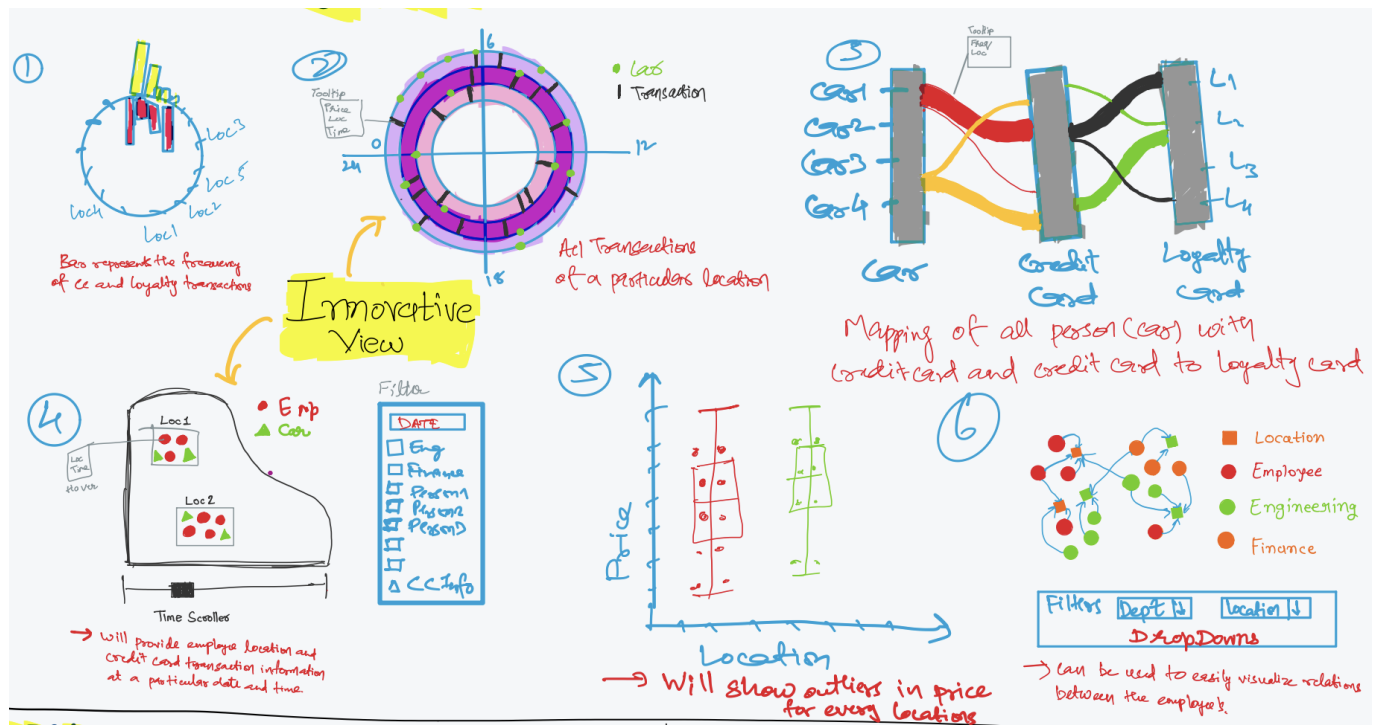 1
Loc3
Loc5
Loc2
Loc1
Loc4
Bar represents the frequency
of cc and loyalty transactions
2
Tooltip
Price
Loc
Time
6
12
18
24
0
Car
Transaction
All Transactions
of a particular location
Innovative
View
3
Tooltip
Freq/
Loc
Car1
Car2
Car3
Car4
L1
L2
L3
L4
Car
Credit
Card
Loyalty
Card
Mapping of all person (car) with
creditcard and credit card to loyalty card
4
Emp
Car
Loc1
Loc
Time
Hover
Loc2
Time Scroller
→ Will provide employee location and
credit card transaction information
at a particular date and time
Filter
DATE
Eng
Finance
Person1
Person2
Person3
CC Info
5
Price
Location
→ Will show outliers in price
for every locations
6
Location
Employee
Engineering
Finance
Filters Dept Location
DropDowns
→ can be used to easily visualize relations
between the employee's.